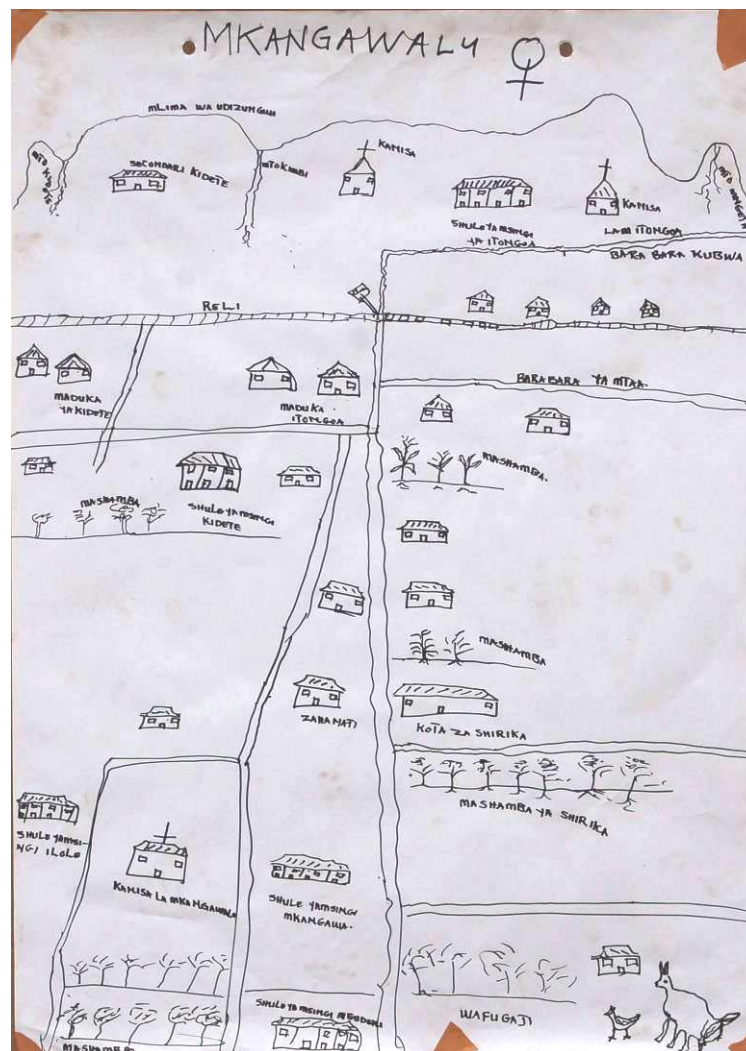 MKANGAWALU
MLIMA WA UDIZUNGUI
KANISA
SECONDARI KIDETE
MTO KUMBI
SHULE YAMSINGI
YA ITONGOA
KANISA
LAM ITONGOA
BARA BARA KUBWA
RELI
MADUKA
YA KIDETE
MADUKA
ITONGOA
BARABARA YA MTAA.
MASHAMBA.
MASHAMBA
SHULE YAMSINGI
KIDETE
MASHAMBA
ZAHANATI
KOTA ZA SHIRIKA
MASHAMBA YA SHIRIKA
SHULE YAMSI-
NGI ILOLO
KANISA LA MKANGAWALA
SHULE YAMSINGI
MKANGAWA.
WAFUGAJI
SHULE YAMSINGI
MASHAMBA